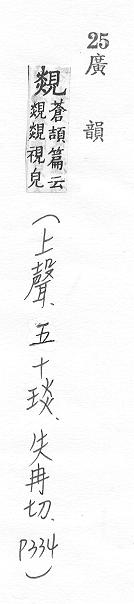 25廣韻
覢
蒼頡篇云
覢覢視皃
(上聲、五十琰、失冉切、P334)